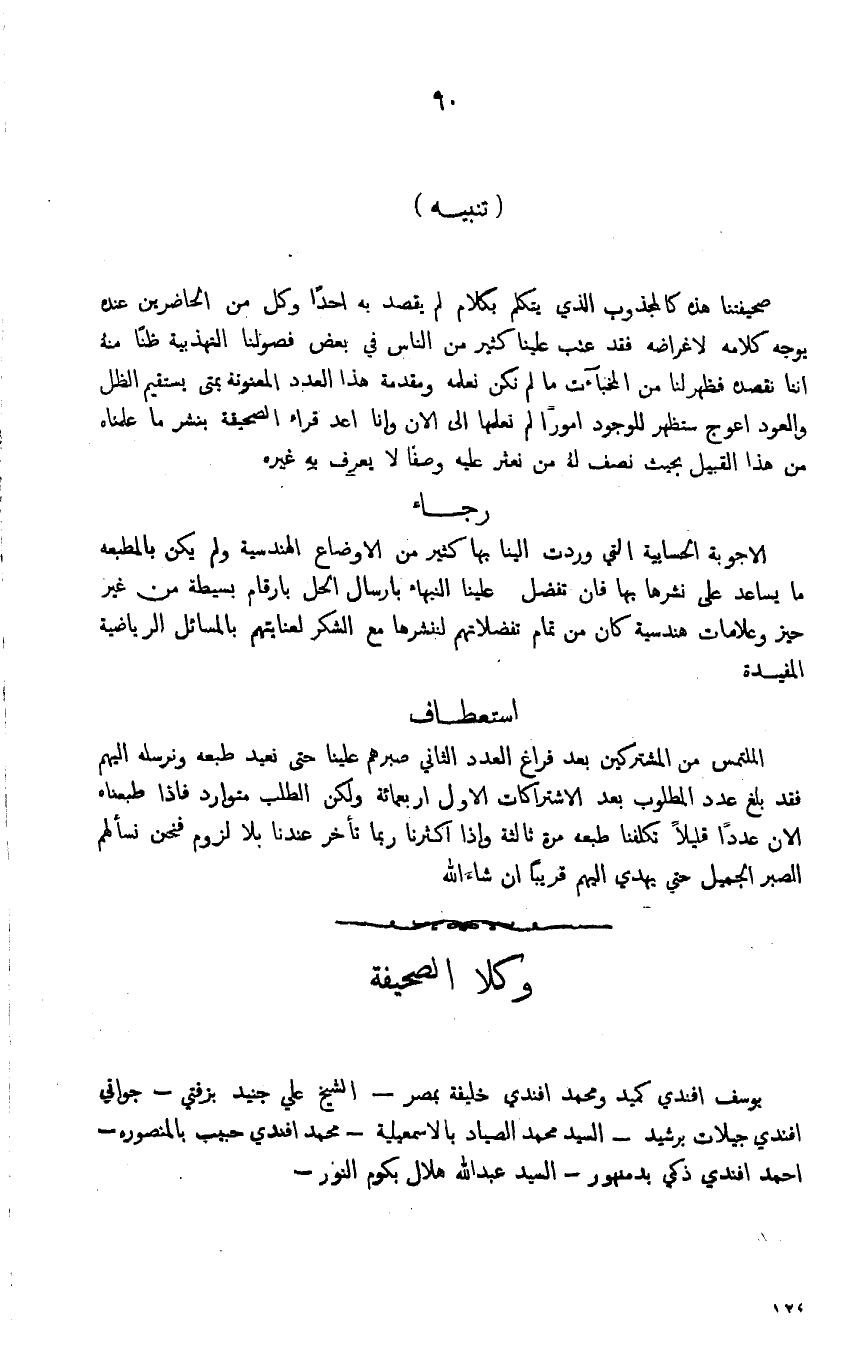 ٩٠
( تنبيــه )
صحيفتنا هذه كالمجذوب الذي يتكلم بكلام لم يقصد به احدًا وكل من الحاضرين عنده
يوجه كلامه لاغراضه فقد عتب علينا كثير من الناس في بعض فصولنا التهذيبية ظنًا منهُ
اننا نقصده فظهر لنا من المخبآت ما لم نكن نعلمه ومقدمة هذا العدد المعنونة بمتى يستقيم الظل
والعود اعوج ستظهر للوجود امورًا لم نعلمها الى الان وإنا اعد قراء الصحيفة بنشر ما علمناه
من هذا القبيل بحيث نصف لهُ من نعثر عليه وصفًا لا يعرف بهِ غيره
رجــــاء
الاجوبة الحسابية التي وردت الينا بها كثير من الاوضاع الهندسية ولم يكن بالمطبعه
ما يساعد على نشرها بها فان تفضل علينا النبهاء بارسال الحل بارقام بسيطة من غير
حيز وعلامات هندسية كان من تمام تفضلاتهم لننشرها مع الشكر لعنايتهم بالمسائل الرياضية
المفيــدة
استعطــاف
الملتمس من المشتركين بعد فراغ العدد الثاني صبرهم علينا حتى نعيد طبعه ونرسله اليهم
فقد بلغ عدد المطلوب بعد الاشتراكات الاول اربعمائة ولكن الطلب متوارد فاذا طبعناه
الان عددًا قليلاً تكلفنا طبعه مرة ثالثة وإذا اكثرنا ربما تأخر عندنا بلا لزوم فنحن نسألهم
الصبر الجميل حتي يهدي اليهم قريبًا ان شاءَ الله
وكلا الصحيفة
يوسف افندي كميد ومحمد افندي خليفة بمصر — الشيخ علي جنيد بزفتي — جواني
افندي جيلات برشيد — السيد محمد الصياد بالاسمعيلية — محمد افندي حبيب بالمنصوره —
احمد افندي ذكي بدمنهور — السيد عبدالله هلال بكوم النور —
١٢٤